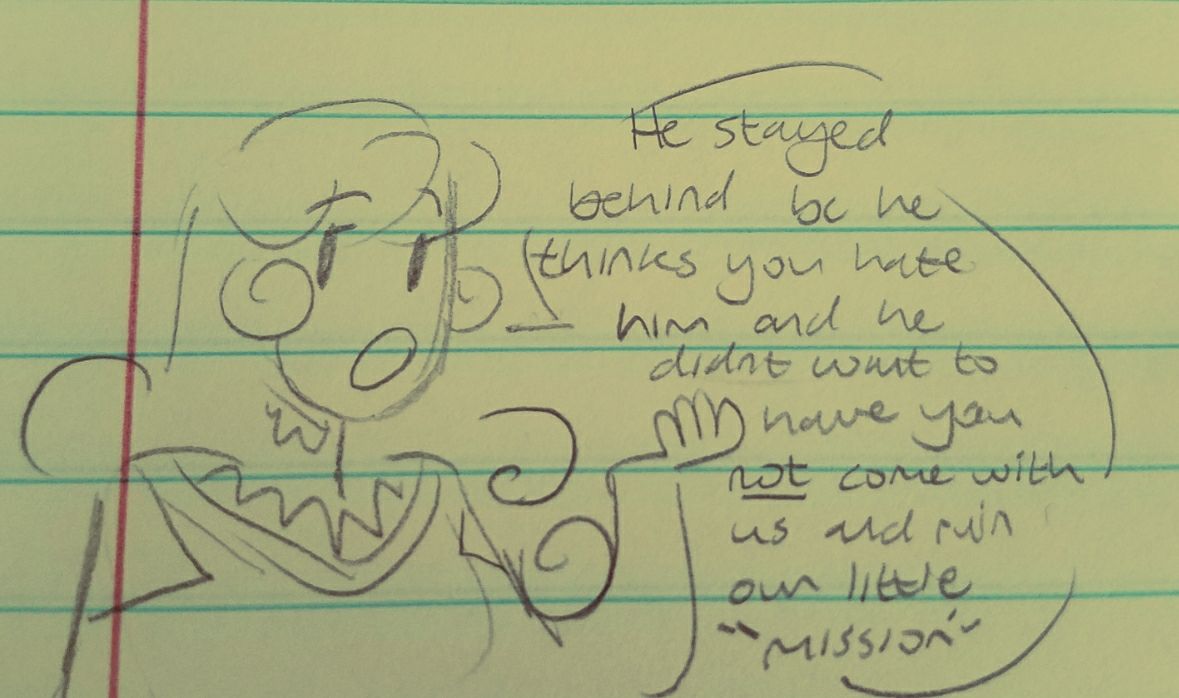 He stayed
behind bc he
thinks you hate
him and he
didnt want to
have you
not come with
us and ruin
our little
"MISSION"